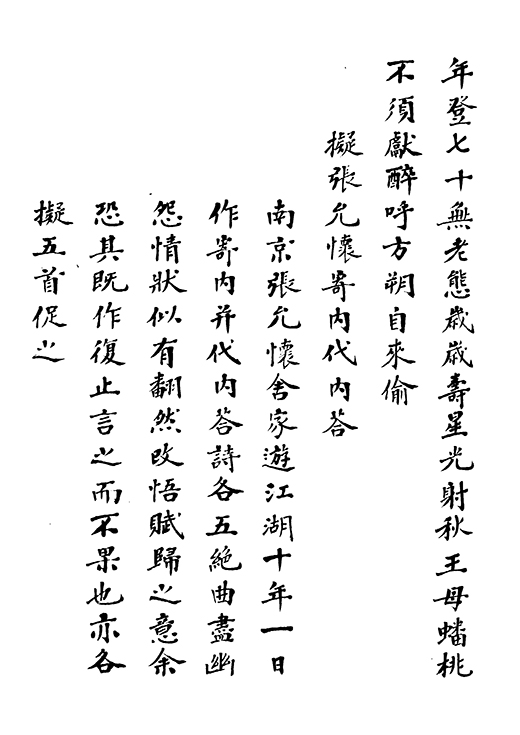 年登七十無老態歲歲壽星光射秋王母蟠桃
不須獻醉呼方朔自來偷
擬張允懷寄内代内荅
南京張允懷舍家遊江湖十年一日
作寄内并代内荅詩各五絶曲盡幽
怨情狀似有翻然改悟賦歸之意余
恐其既作復止言之而不果也亦各
擬五首促之